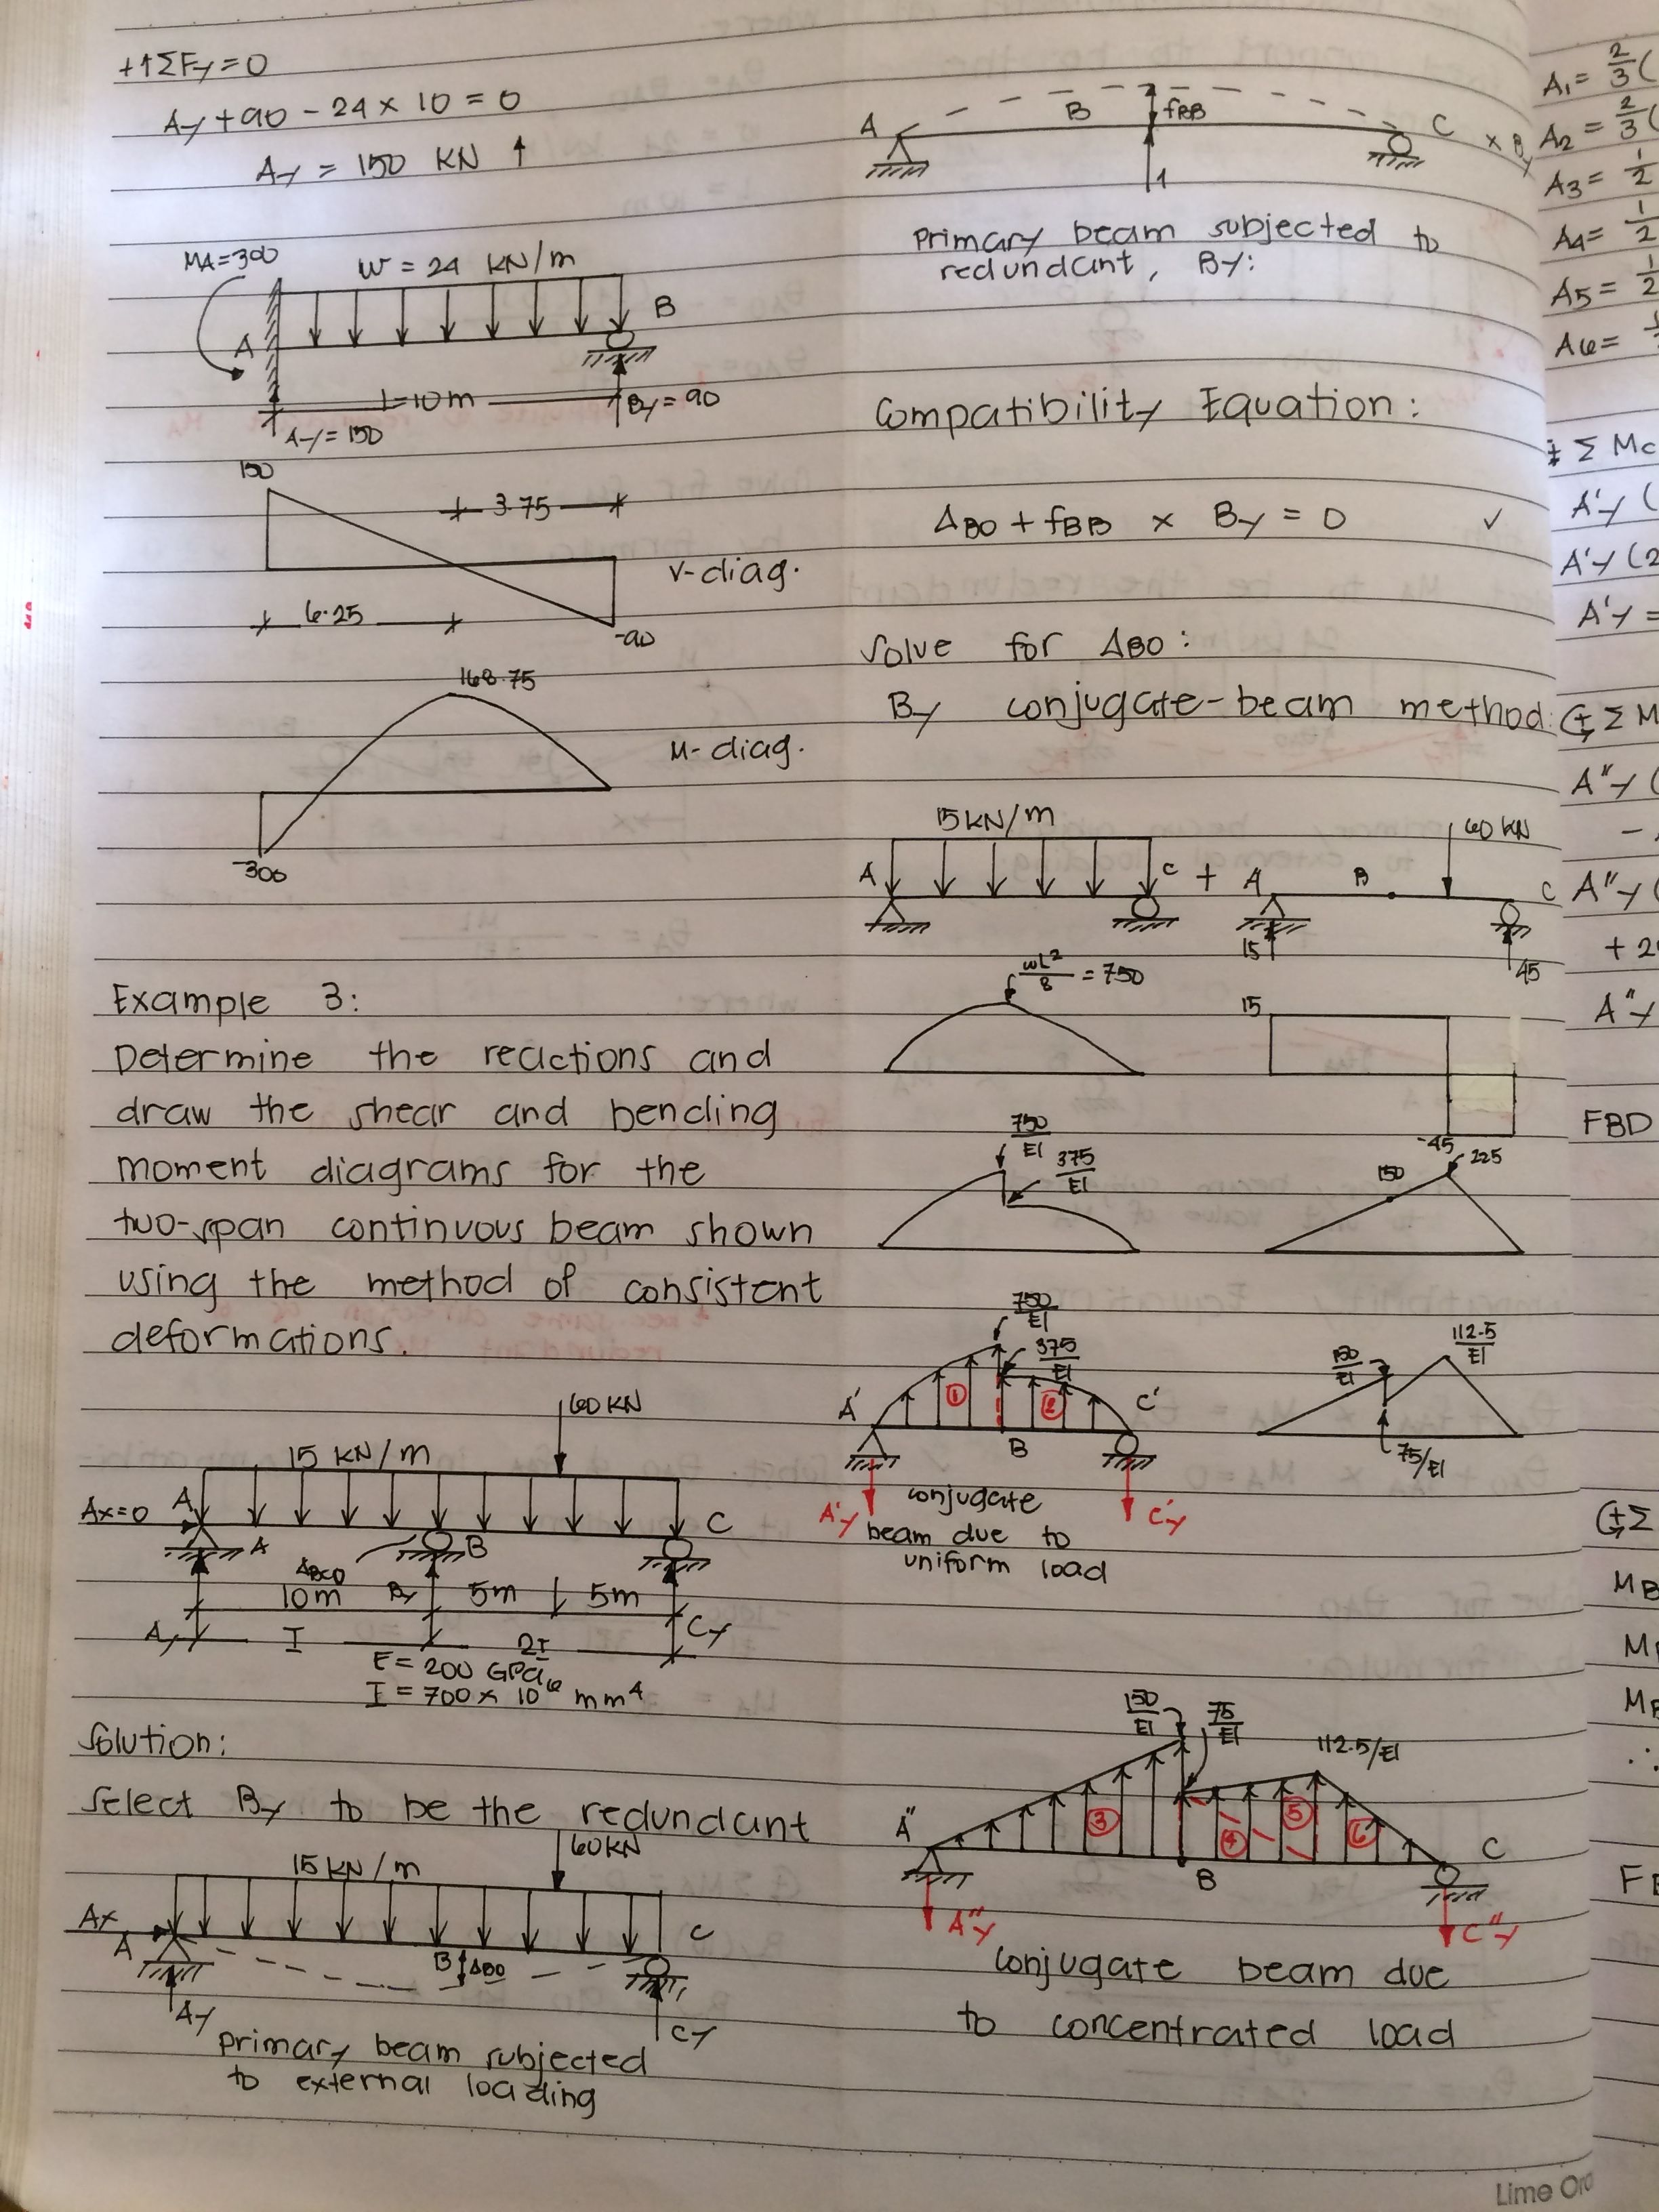 +↑ΣFy=0
Ay + 90 - 24 × 10 = 0
Ay = 150 KN ↑
MA=300
W = 24 KN/m
A
B
L=10m
By = 90
Ay = 150
150
3.75
V-diag.
6.25
-90
168.75
M-diag.
-300
Example 3:
Determine the reactions and
draw the shear and bending
moment diagrams for the
two-span continuous beam shown
using the method of consistent
deformations.
60KN
15 KN/m
Ax=0
A
A
B
C
10m
By
5m
5m
Ay
Cy
I
2I
E = 200 GPa
I = 700 × 10⁶ mm⁴
Solution:
Select By to be the redundant
60KN
15 KN/m
Ax
A
B
ΔBO
C
Ay
Cy
primary beam subjected
to external loading
A
B
fBB
C
× By
1
Primary beam subjected to
redundant, By:
Compatibility Equation:
ΔBO + fBB × By = 0 ✓
Solve for ΔBO:
By conjugate-beam method:
15KN/m
60 KN
A
C
+
A
B
C
15
45
wL²/8 = 750
15
-45
750/EI
375/EI
225
150
750/EI
375/EI
150/EI
112.5/EI
A'
①
②
C'
B
75/EI
A'y
C'y
conjugate
beam due to
uniform load
150/EI
75/EI
112.5/EI
A"
③
④
⑤
⑥
C
B
A"y
C"y
conjugate beam due
to concentrated load
A1 = 2/3 (
A2 = 2/3 (
A3 = 1/2
A4 = 1/2
A5 = 1/2
A6 =
Σ Mc
A'y (
A'y (2
A'y =
Σ M
A"y (
A"y (
+ 2
A"y
FBD
Σ
MB
Lime Ora